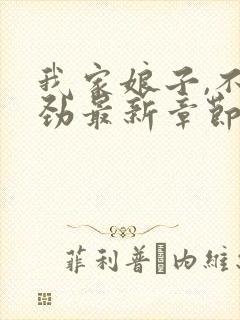 我家娘子,不
劲最新章節
菲利普·内維